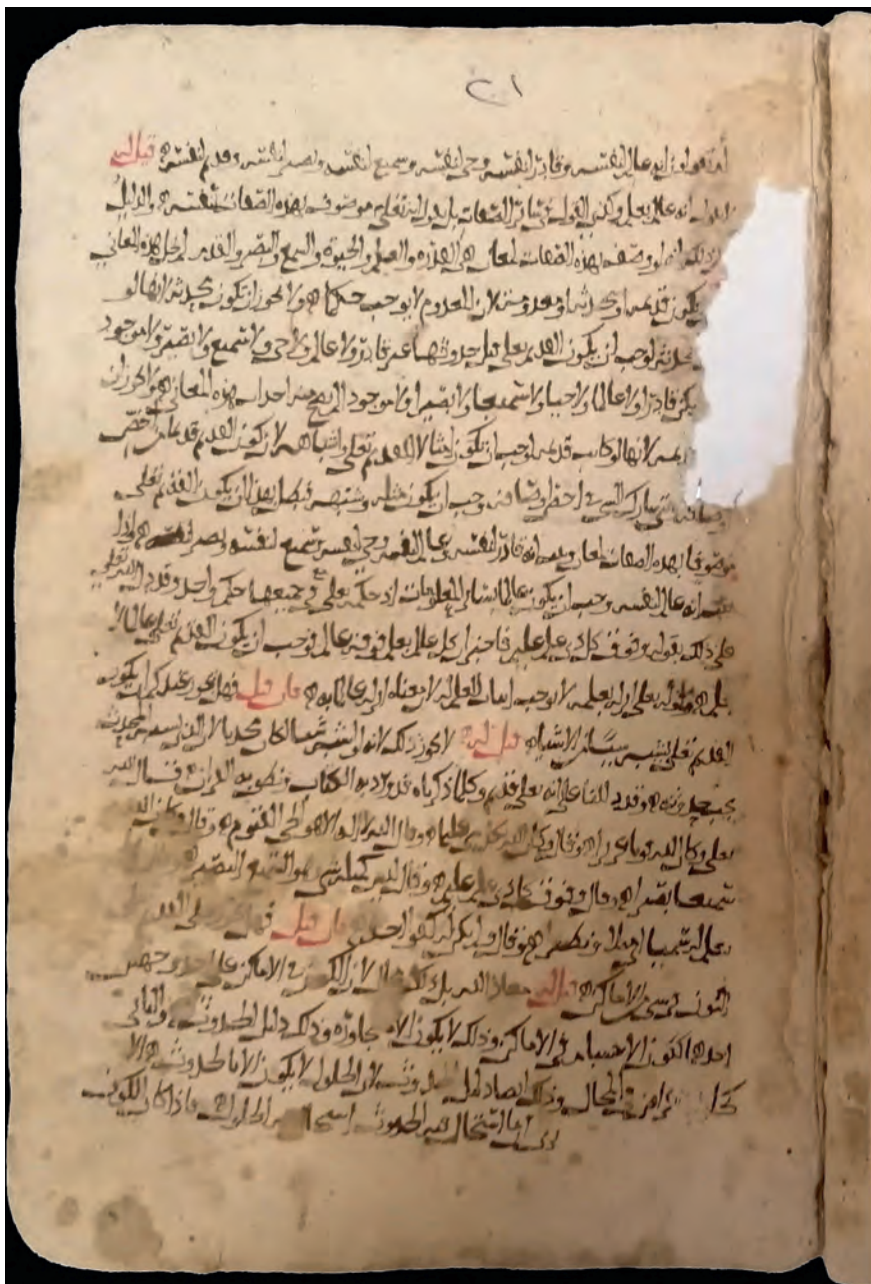 ٢١
أفتقولون انه عالم لنفسه وقادر لنفسه وحي لنفسه وسميع لنفسه وبصير لنفسه وقديم لنفسه ه قيل له
انه عالم بعلم ولكن القول في سائر الصفات بل نقول انه تعلى موصوف بهذه الصفات لنفسه ه والدليل
ذلك انه لو وصف بهذه الصفات لمعان هي القدرة والعلم والحيوة والسمع والبصر والقدم لم تخل هذه المعاني
يكون قديمه او محدثه او معدومه لان المعدوم لا يوجب حكما ه ولا يجوز ان تكون محدثه لانها لو
محدثه لوجب ان يكون القديم تعلى قبل حدوثها غير قادر ولا عالم ولا حي ولا سميع ولا بصير ولا موجود
يكن قادرا ولا عالما ولا حيا ولا سميعا ولا بصيرا ولا موجودا لم يصح منه احداث هذه المعاني ه ولا يجوز ان
قديمه لانها لو كانت قديمه لوجب ان يكون امثالا للقديم تعلى واشباهه لان كون القديم قديما من اخص
شارك الشي في اخص اوصافه وجب ان يكون مثله وشبهه فبطل بهذا ان يكون القديم تعلى
موصوفا بهذه الصفات لمعان وثبت انه قادر لنفسه وعالم لنفسه وحي لنفسه وسميع لنفسه وبصير لنفسه ه واذا
ثبت انه عالم لنفسه وجب ان يكون عالما بسائر المعلومات اذ حكمه تعلى مع جميعها حكم واحد وقد دل الله تعلى
على ذلك بقوله وفوق كل ذي علم عليم فاخبر ان كل عالم بعلم فوقه عالم فوجب ان يكون القديم تعلى عالما لا
بعلم ه وقوله تعلى انزله بعلمه لا يوجب اثبات العلم له لان معناه انزله عالما به ه فان قيل فهل يجوز عندكم ان يكون
القديم تعلى يشبه سائر الاشياء قيل له ه لا يجوز ذلك لانه لو اشبه شيئا لكان محدثا لان الذي يشبه المحدث
يجب حدوثه ه وقد دللنا على انه تعلى قديم وكلما ذكرناه قد ورد به الكتاب ونطق به القران ه قال الله
تعلى وكان الله قويا عزيزا ه وقال وكان الله بكل شي عليما ه وقال الله لا اله الا هو الحي القيوم ه وقال وكان الله
سميعا بصيرا ه وقال وفوق كل ذي علم عليم ه وقال ليس كمثله شي وهو السميع البصير ه
تعلم له سميا اي مثلا ونظيرا ه وقال ولم يكن له كفوا احد ه فان قيل فهل يجوز على القديم
الكون في شي الاماكن ه قيل له معاذ الله بل ذلك محال لان الكون في الاماكن على احد وجهين
احدهما كون الاجسام في الاماكن وذلك لا يكون الا مجاوره وذلك دليل الحدوث ه والثاني
الاعراض في المحال وذلك ايضا دليل الحدوث لان الحلول لا يكون الا بالحدوث ه الا
ترى لما استحال الحدوث استحال الحلول ه فاذا كان الكون